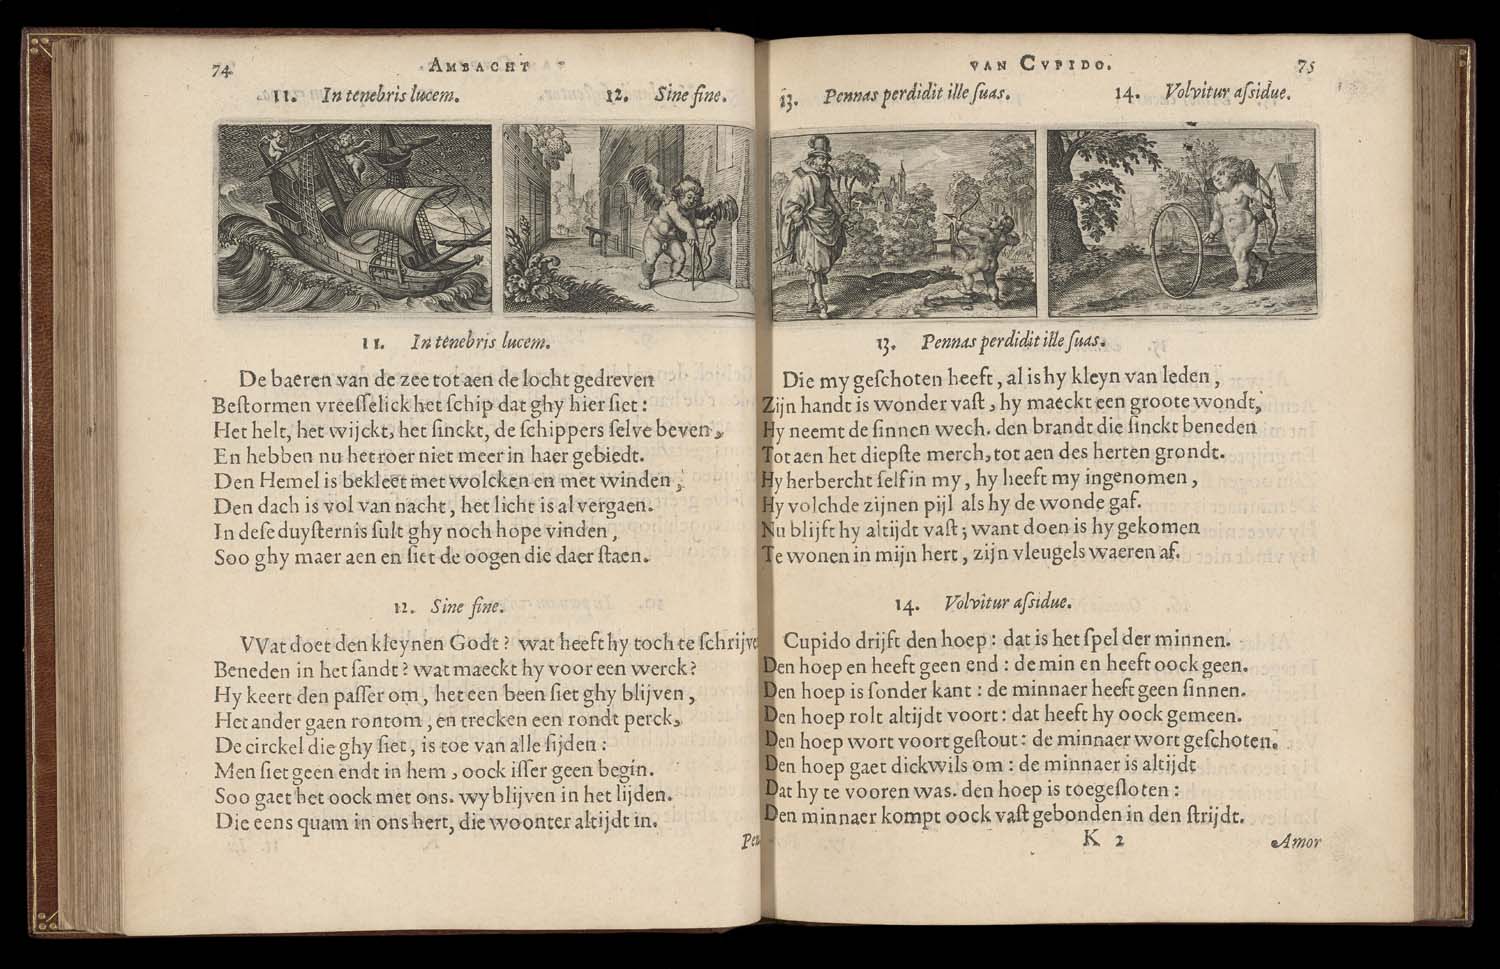 74
AMBACHT
11. In tenebris lucem. 12. Sine fine.
11. In tenebris lucem.
De baeren van de zee tot aen de locht gedreven
Beſtormen vreeſſelick het ſchip dat ghy hier ſiet :
Het helt, het wijckt, het ſinckt, de ſchippers ſelve beven,
En hebben nu het roer niet meer in haer gebiedt.
Den Hemel is bekleet met wolcken en met winden,
Den dach is vol van nacht, het licht is al vergaen.
In deſe duyſternis ſult ghy noch hope vinden,
Soo ghy maer aen en ſiet de oogen die daer ſtaen.
12. Sine fine.
VVat doet den kleynen Godt ? wat heeft hy toch te ſchrijve
Beneden in het ſandt ? wat maeckt hy voor een werck ?
Hy keert den paſſer om, het een been ſiet ghy blijven,
Het ander gaen rontom, en trecken een rondt perck,
De circkel die ghy ſiet, is toe van alle ſijden :
Men ſiet geen endt in hem, oock iſſer geen begin.
Soo gaet het oock met ons. wy blijven in het lijden.
Die eens quam in ons hert, die woonter altijdt in.
Pen
VAN CVPIDO.
75
13. Pennas perdidit ille ſuas. 14. Volvitur aſsidue.
13. Pennas perdidit ille ſuas.
Die my geſchoten heeft, al is hy kleyn van leden,
Zijn handt is wonder vaſt, hy maeckt een groote wondt,
Hy neemt de ſinnen wech. den brandt die ſinckt beneden
Tot aen het diepſte merch, tot aen des herten grondt.
Hy herbercht ſelf in my, hy heeft my ingenomen,
Hy volchde zijnen pijl als hy de wonde gaf.
Nu blijft hy altijdt vaſt; want doen is hy gekomen
Te wonen in mijn hert, zijn vleugels waeren af.
14. Volvitur aſsidue.
Cupido drijft den hoep : dat is het ſpel der minnen.
Den hoep en heeft geen end : de min en heeft oock geen.
Den hoep is ſonder kant : de minnaer heeft geen ſinnen.
Den hoep rolt altijdt voort : dat heeft hy oock gemeen.
Den hoep wort voort geſtout : de minnaer wort geſchoten.
Den hoep gaet dickwils om : de minnaer is altijdt
Dat hy te vooren was. den hoep is toegeſloten :
Den minnaer kompt oock vaſt gebonden in den ſtrijdt.
K 2
Amor